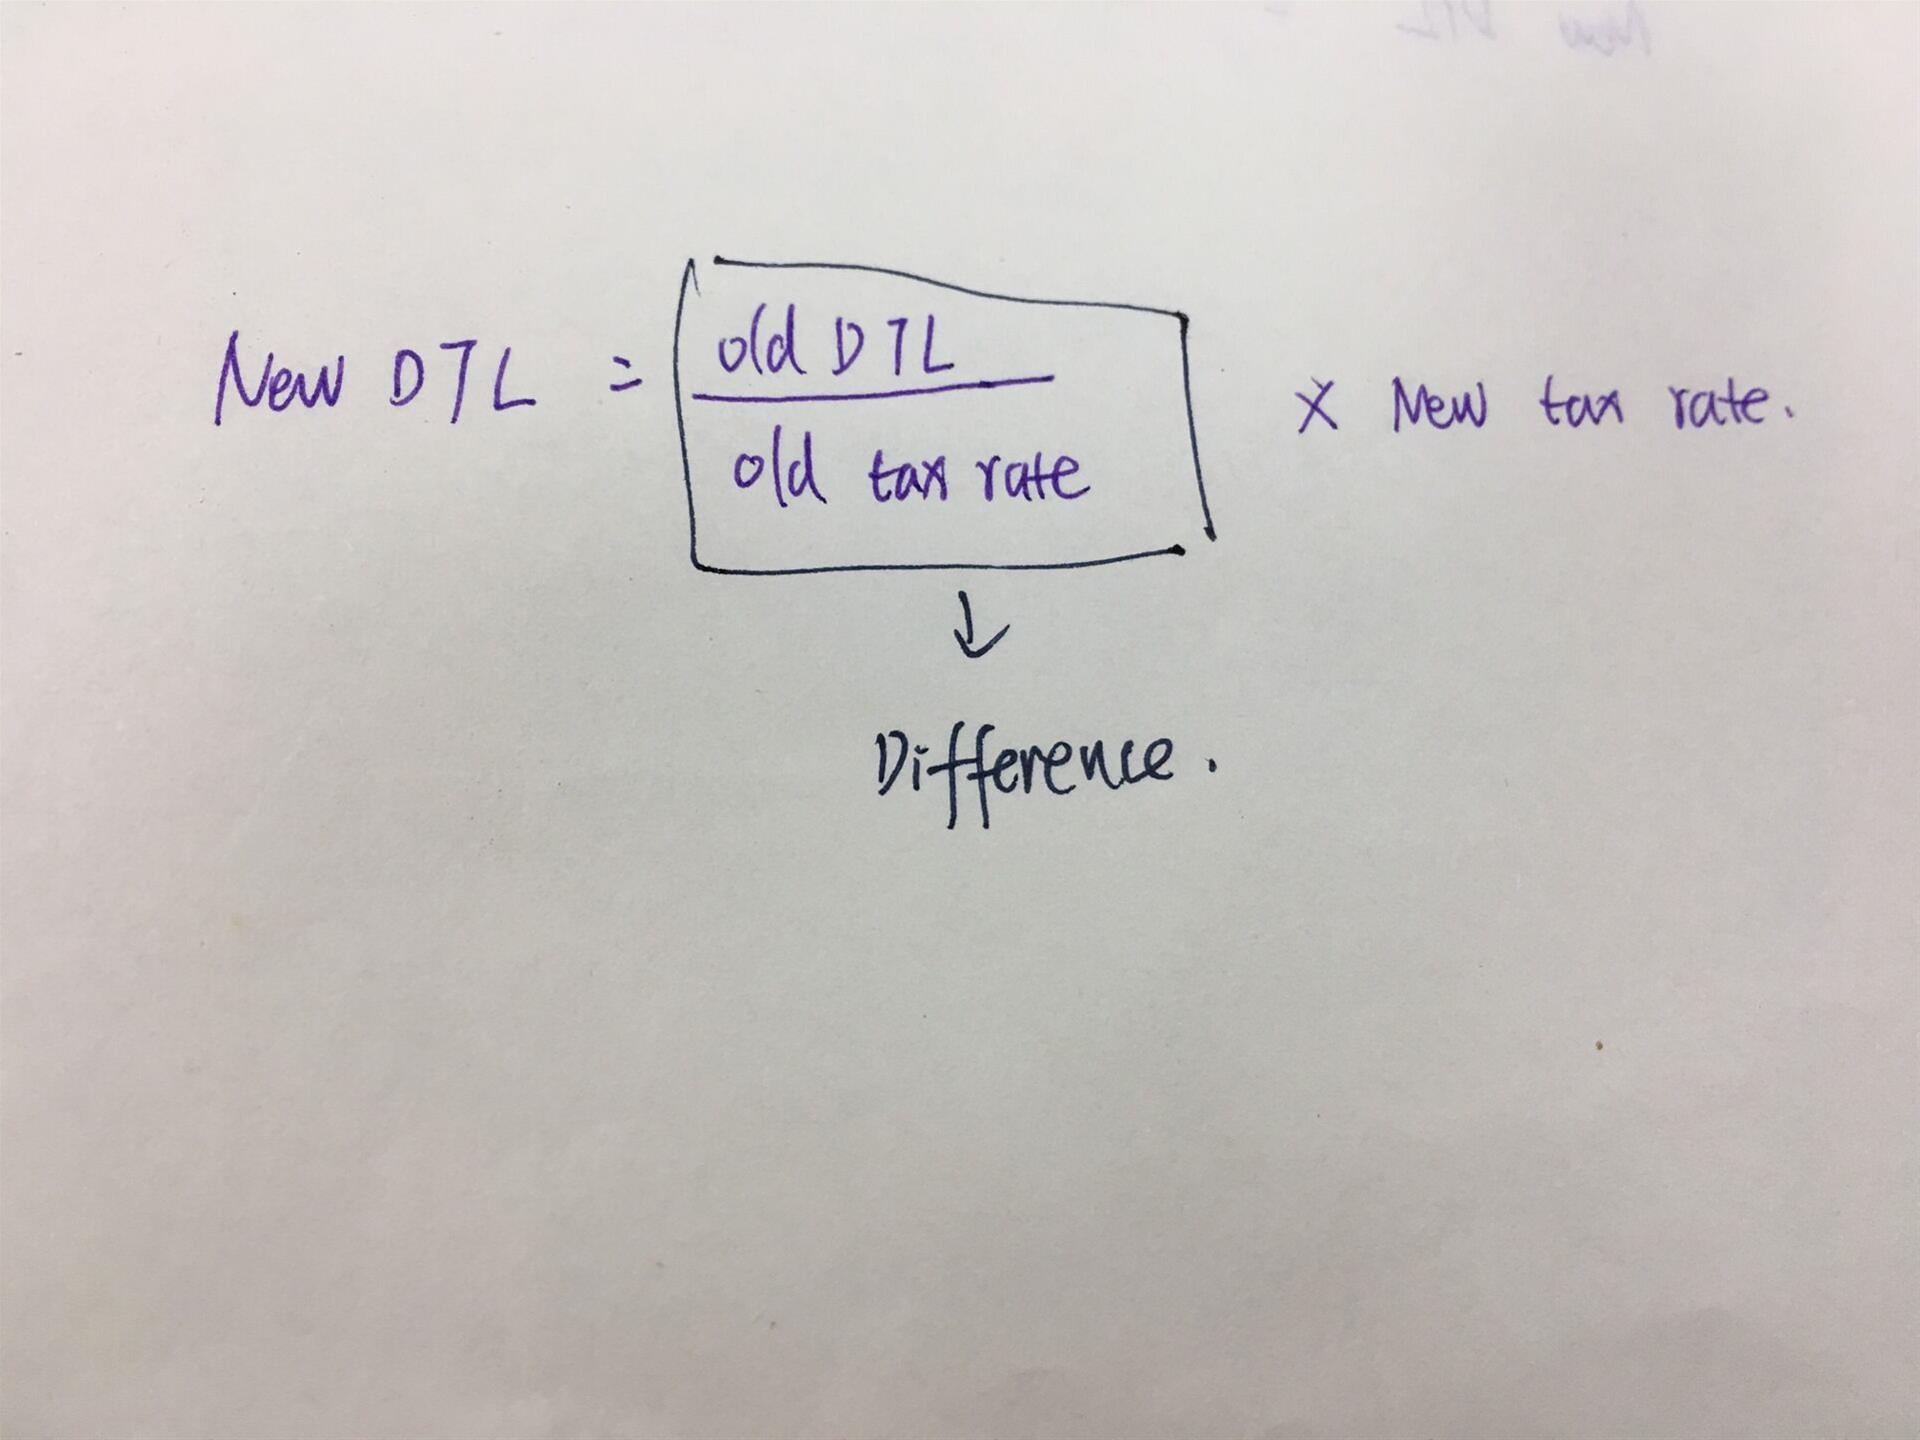 New DTL = old DTL / old tax rate × New tax rate.
↓
Difference.